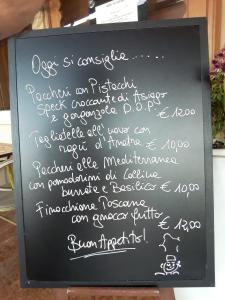 Oggi si consiglia......
Paccheri con Pistacchi
Speck croccante di Asiago
e gorgonzola D.O.P.
€ 12,00
Tagliatelle all'uovo con
ragù d'Anatra € 10,00
Paccheri alla Mediterranea
con pomodorini di Collina
burrata e Basilico € 10,00
Finocchiona Toscana
con gnocco fritto € 12,00
Buon Appetito!